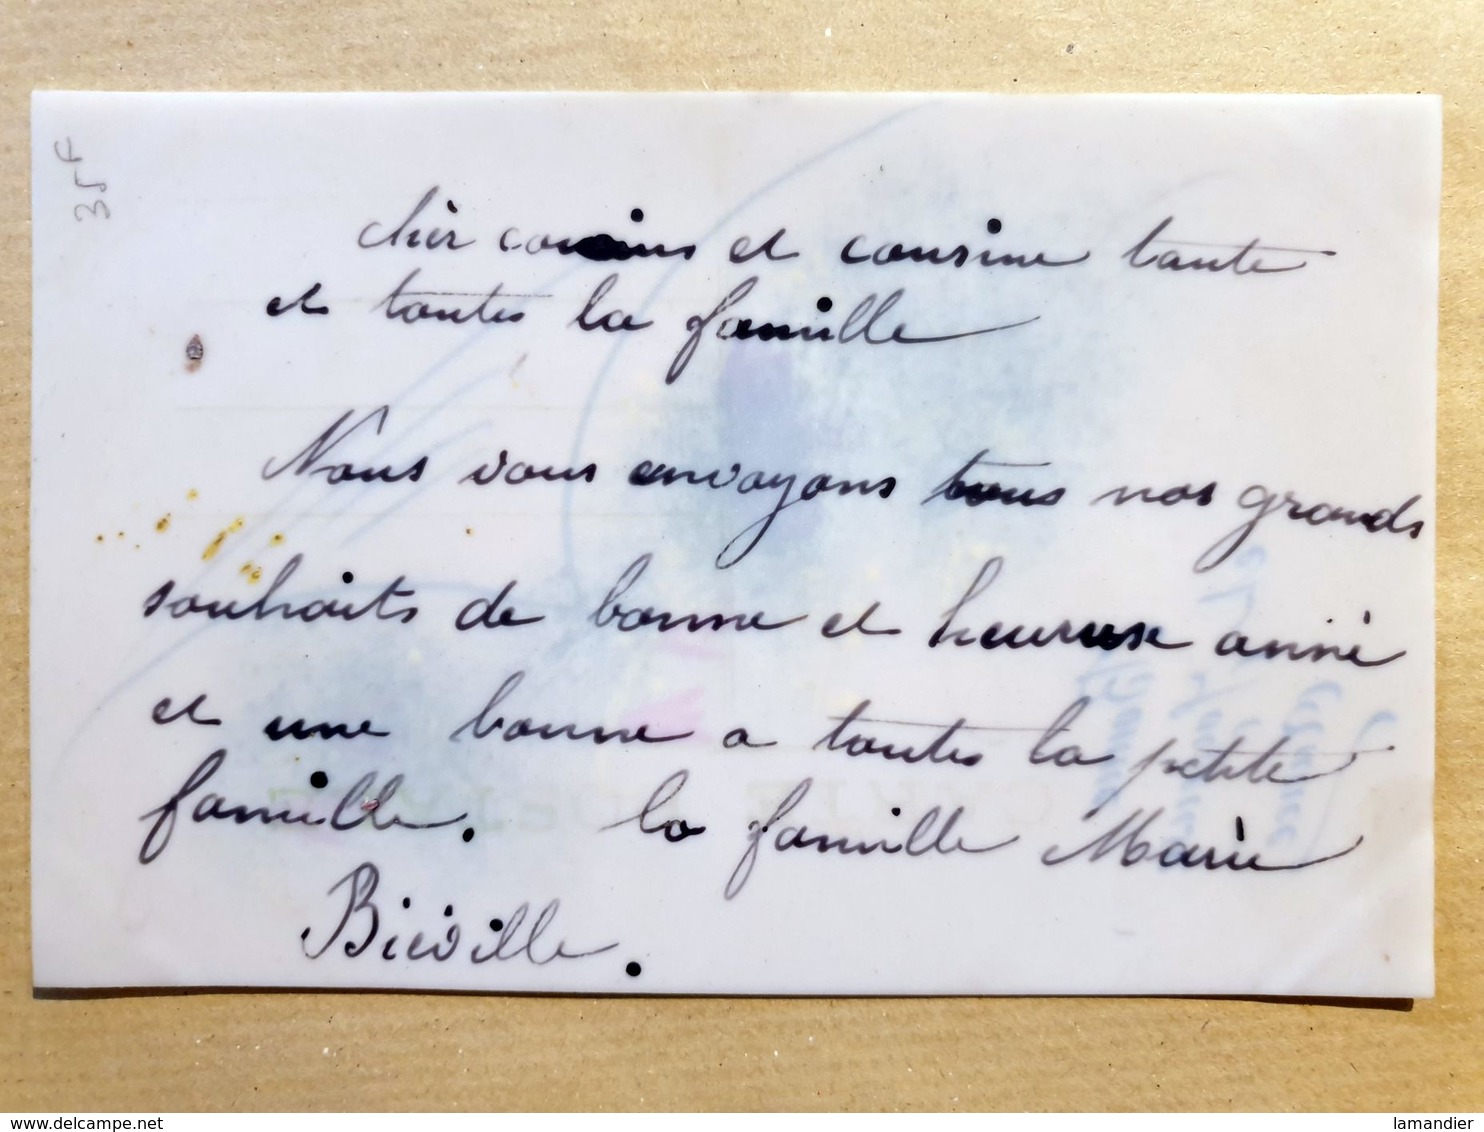 35F
chèr cousins et cousine tante
et toutes la famille
Nous vous envoyons tous nos grands
souhaits de bonne et heureuse anné
et une bonne a toutes la petite
famille. la famille Marie
Bieville.
delcampe.net
lamandier